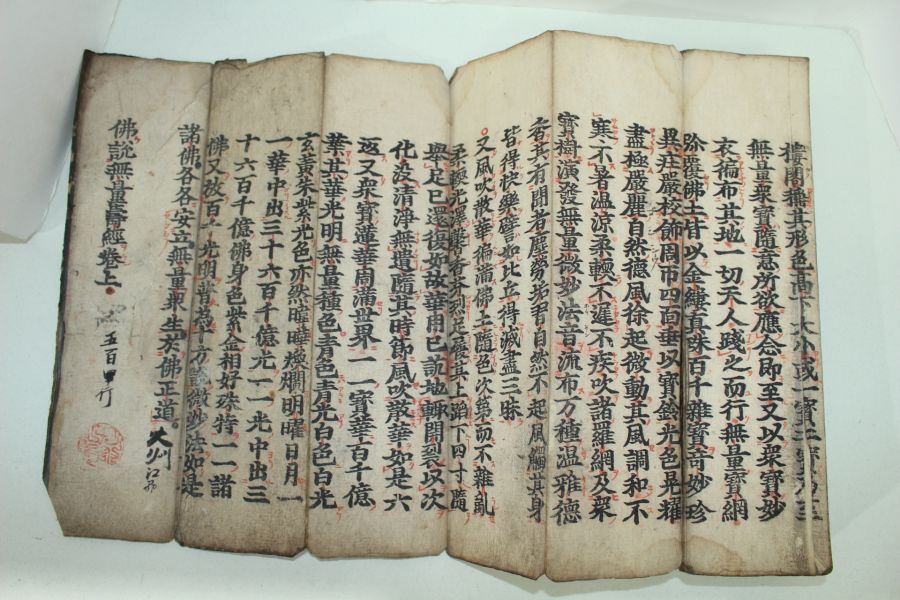 樓閣稱其形色高下大小或一寶二寶乃至
無量衆寶隨意所欲應念即至又以衆寶妙
衣徧布其地一切天人踐之而行無量寶網
弥覆佛土皆以金縷真珠百千雜寶奇妙珍
異莊嚴校飾周帀四面垂以寶鈴光色晃耀
盡極嚴麗自然德風徐起微動其風調和不
寒不暑温涼柔輭不遲不疾吹諸羅網及衆
寳樹演發無量微妙法音流布万種温雅德
香其有聞者塵勞垢習自然不起風觸其身
皆得快樂譬如比丘得滅盡三昧
又風吹散華徧滿佛土隨色次第而不雜亂
柔輭光澤馨香芬烈足履其上蹈下四寸隨
舉足已還復如故華用已訖地輙開裂以次
化沒清淨無遺隨其時節風吹散華如是六
返又衆寳蓮華周滿世界一一寳華百千億
葉其華光明無量種色青色青光白色白光
玄黃朱紫光色亦然暐曄煥爛明曜日月一
一華中出三十六百千億光一一光中出三
十六百千億佛身色紫金相好殊特一一諸
佛又放百千光明普爲十方說微妙法如是
諸佛各各安立無量衆生於佛正道。
佛說無量壽經卷上
五百